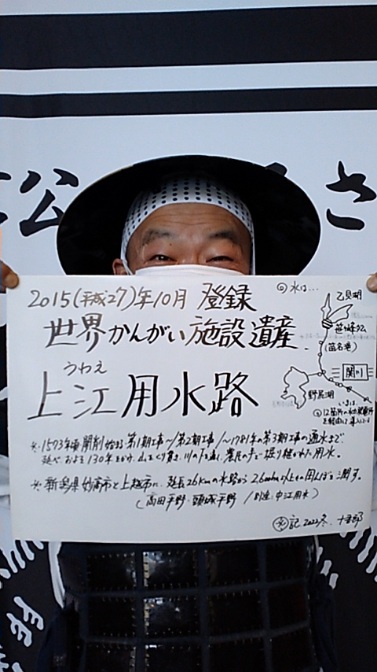 公
さ
2015(平成27)年10月 登録
世界かんがい施設遺産
うわえ
上江用水路
水は…
乙見湖
笹ヶ峰ダム
関川
野尻湖
いまは
※・1573年頃 開削始まる 第1期工事～/第2期工事/～1781年の第3期工事の通水まで
延べおよそ130年をかけ、山をくり貫き、川の下を通し、農民の手で掘り継がれた用水。
※・新潟県妙高市と上越市に、延長26kmの水路から2,600ha以上の田んぼを潤す。
(高田平野・頸城平野 / 別途、中江用水)
記 2022.冬. 十郎